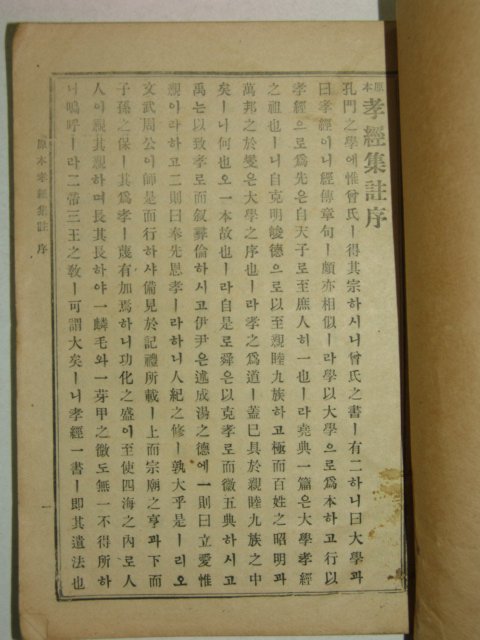 原本 孝經集註序
孔門之學애惟曾氏ㅣ得其宗하시니曾氏之書ㅣ有二하니曰大學과
曰孝經이니經傳章句ㅣ頗亦相似ㅣ라學以大學으로爲本하고行以
孝經으로爲先은自天子로至庶人히一也ㅣ라堯典一篇은大學孝經
之祖也ㅣ니自克明峻德으로以至親睦九族하고極而百姓之昭明과
萬邦之於變은大學之序也ㅣ라孝之爲道ㅣ盖已具於親睦九族之中
矣ㅣ니何也오一本故也ㅣ라自是로舜은以克孝로而徽五典하시고
禹는以致孝로而叙彛倫하시고伊尹은述成湯之德에一則曰立愛惟
親이라하고二則曰奉先思孝ㅣ라하니人紀之修ㅣ孰大乎是ㅣ리오
文武周公이師是而行하샤備見於記禮所載ㅣ上而宗廟之享과下而
子孫之保ㅣ其爲孝ㅣ蔑有加焉하니功化之盛이至使四海之內로人
人이親其親하며長其長하야一麟毛와一芽甲之微도無一不得所하
니嗚呼ㅣ라二帝三王之敎ㅣ可謂大矣ㅣ니孝經一書ㅣ卽其遺法也
原本孝經集註 序